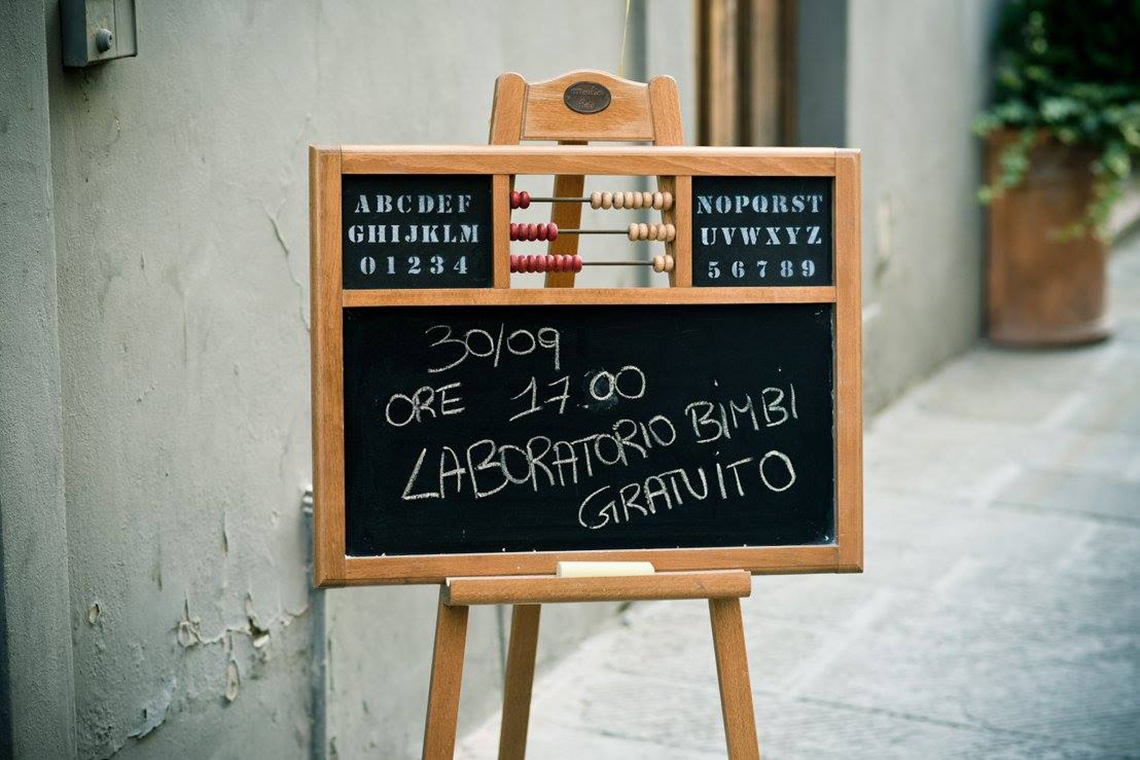 ABCDEF
GHIJKLM
01234
NOPQRST
UVWXYZ
56789
30/09
ORE 17.00
LABORATORIO BIMBI
GRATUITO